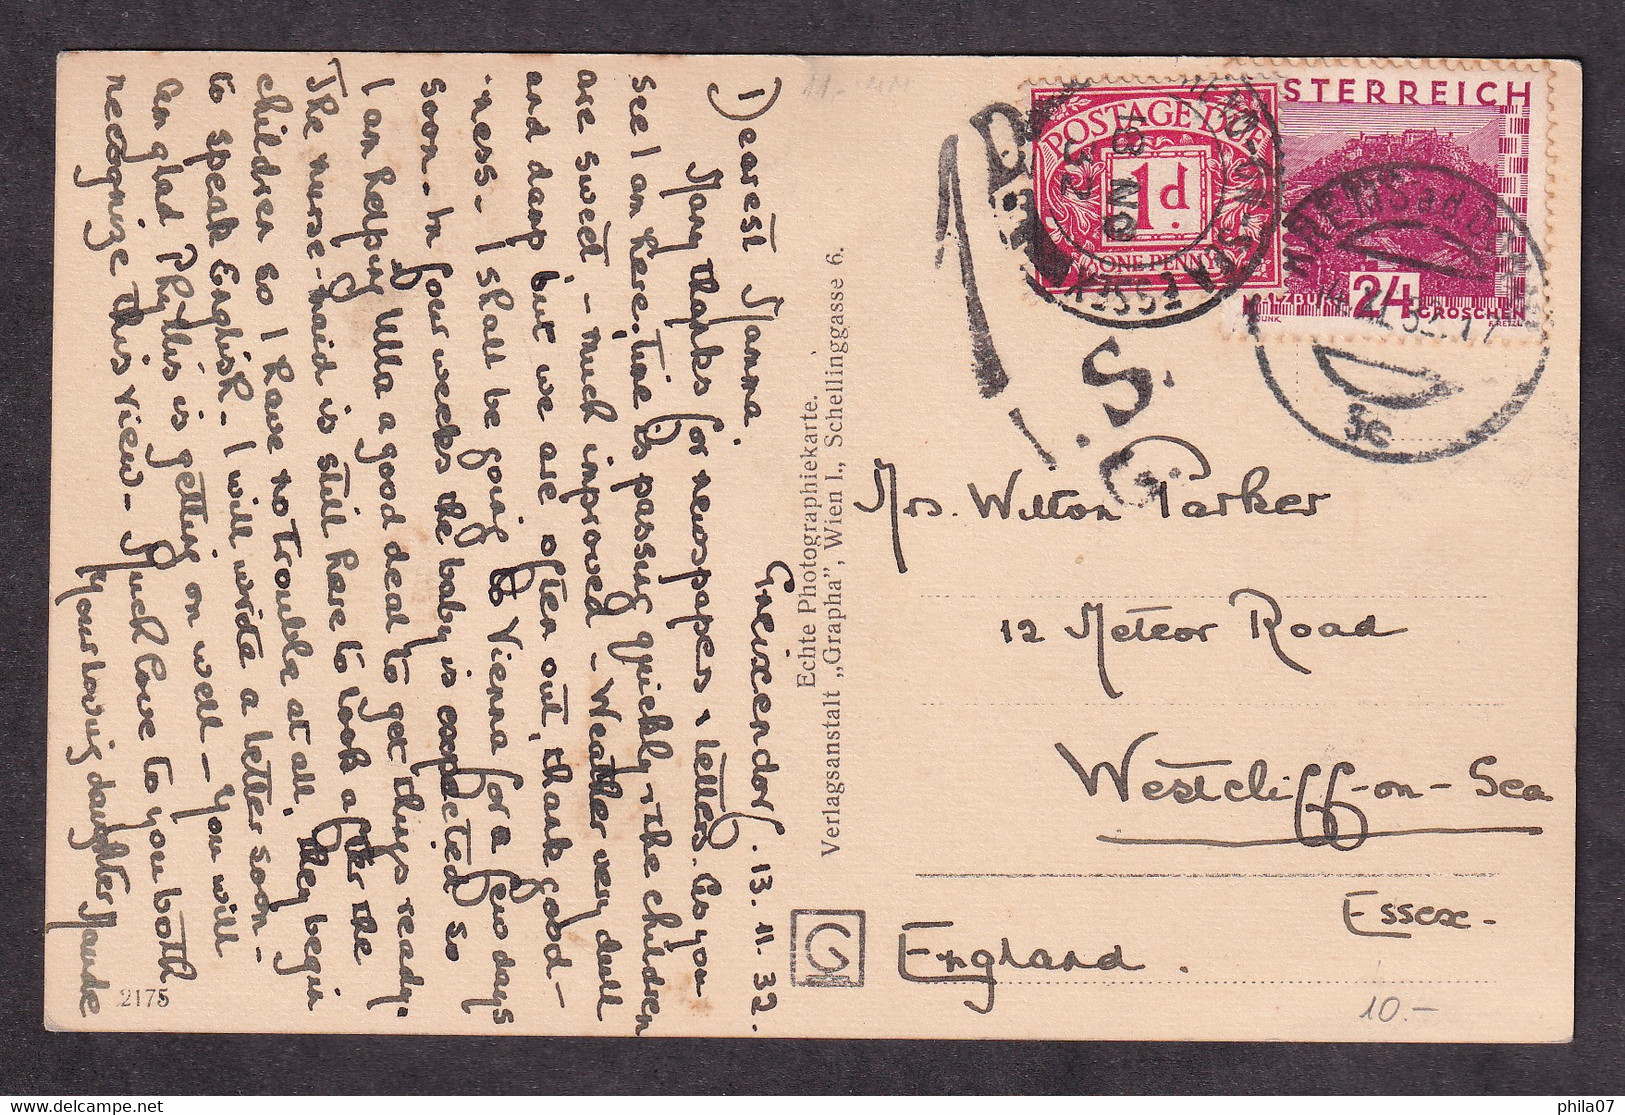 Gneixendorf. 13. 11. 32.
Dearest Mamma,
Many thanks for newspapers & letters. As you
see I am here. Time is passing quickly & the children
are sweet, - much improved - Weather very dull
and damp but we are often out, thank good-
ness. I shall be going to Vienna for a few days
soon - In four weeks the baby is expected so
I am helping Ulla a good deal to get things ready.
The nurse-maid is still here to look after the
children so I have no trouble at all. They begin
to speak English. I will write a better soon -
Am glad Phyllis is getting on well - You will
recognize this view - Much love to you both
Your loving daughter Maude
2175
Echte Photographiekarte.
Verlagsanstalt „Grapha", Wien I., Schellinggasse 6.
G
POSTAGE DUE
1d.
ONE PENNY
18 NO
32
SEA ESSEX
1D.
I.S.G.
ÖSTERREICH
SALZBURG
24
GROSCHEN
KREMS a d DONAU
14. XI. 32. 17
3c
Mrs. Wilton Parker
12 Meteor Road
Westcliff-on-Sea
Essex-
England.
10.-
delcampe.net
phila07